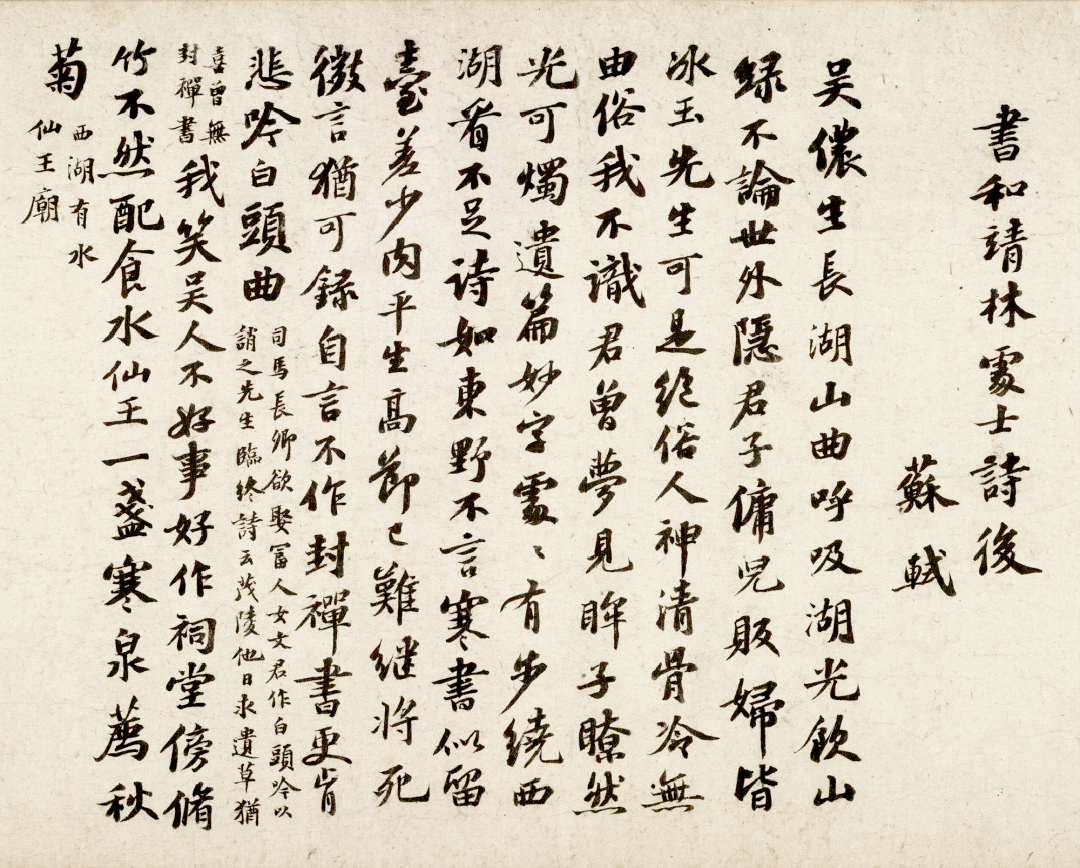 書和靖林處士詩後
蘇軾
吴儂生長湖山曲呼吸湖光飲山
緑不論世外隱君子傭兒販婦皆
冰玉先生可是絶俗人神清骨冷無
由俗我不識君曾夢見眸子瞭然
光可燭遺篇妙字處〻有步繞西
湖看不足詩如東野不言寒書似留
臺差少肉平生高節已難継將死
微言猶可録自言不作封禪書更肯
悲吟白頭曲
司馬長卿欲娶富人女文君作白頭吟以
誚之先生臨終詩云茂陵他日求遺草猶
喜曾無
封禪書
我笑吴人不好事好作祠堂傍脩
竹不然配食水仙王一盞寒泉薦秋
菊
西湖有水
仙王廟